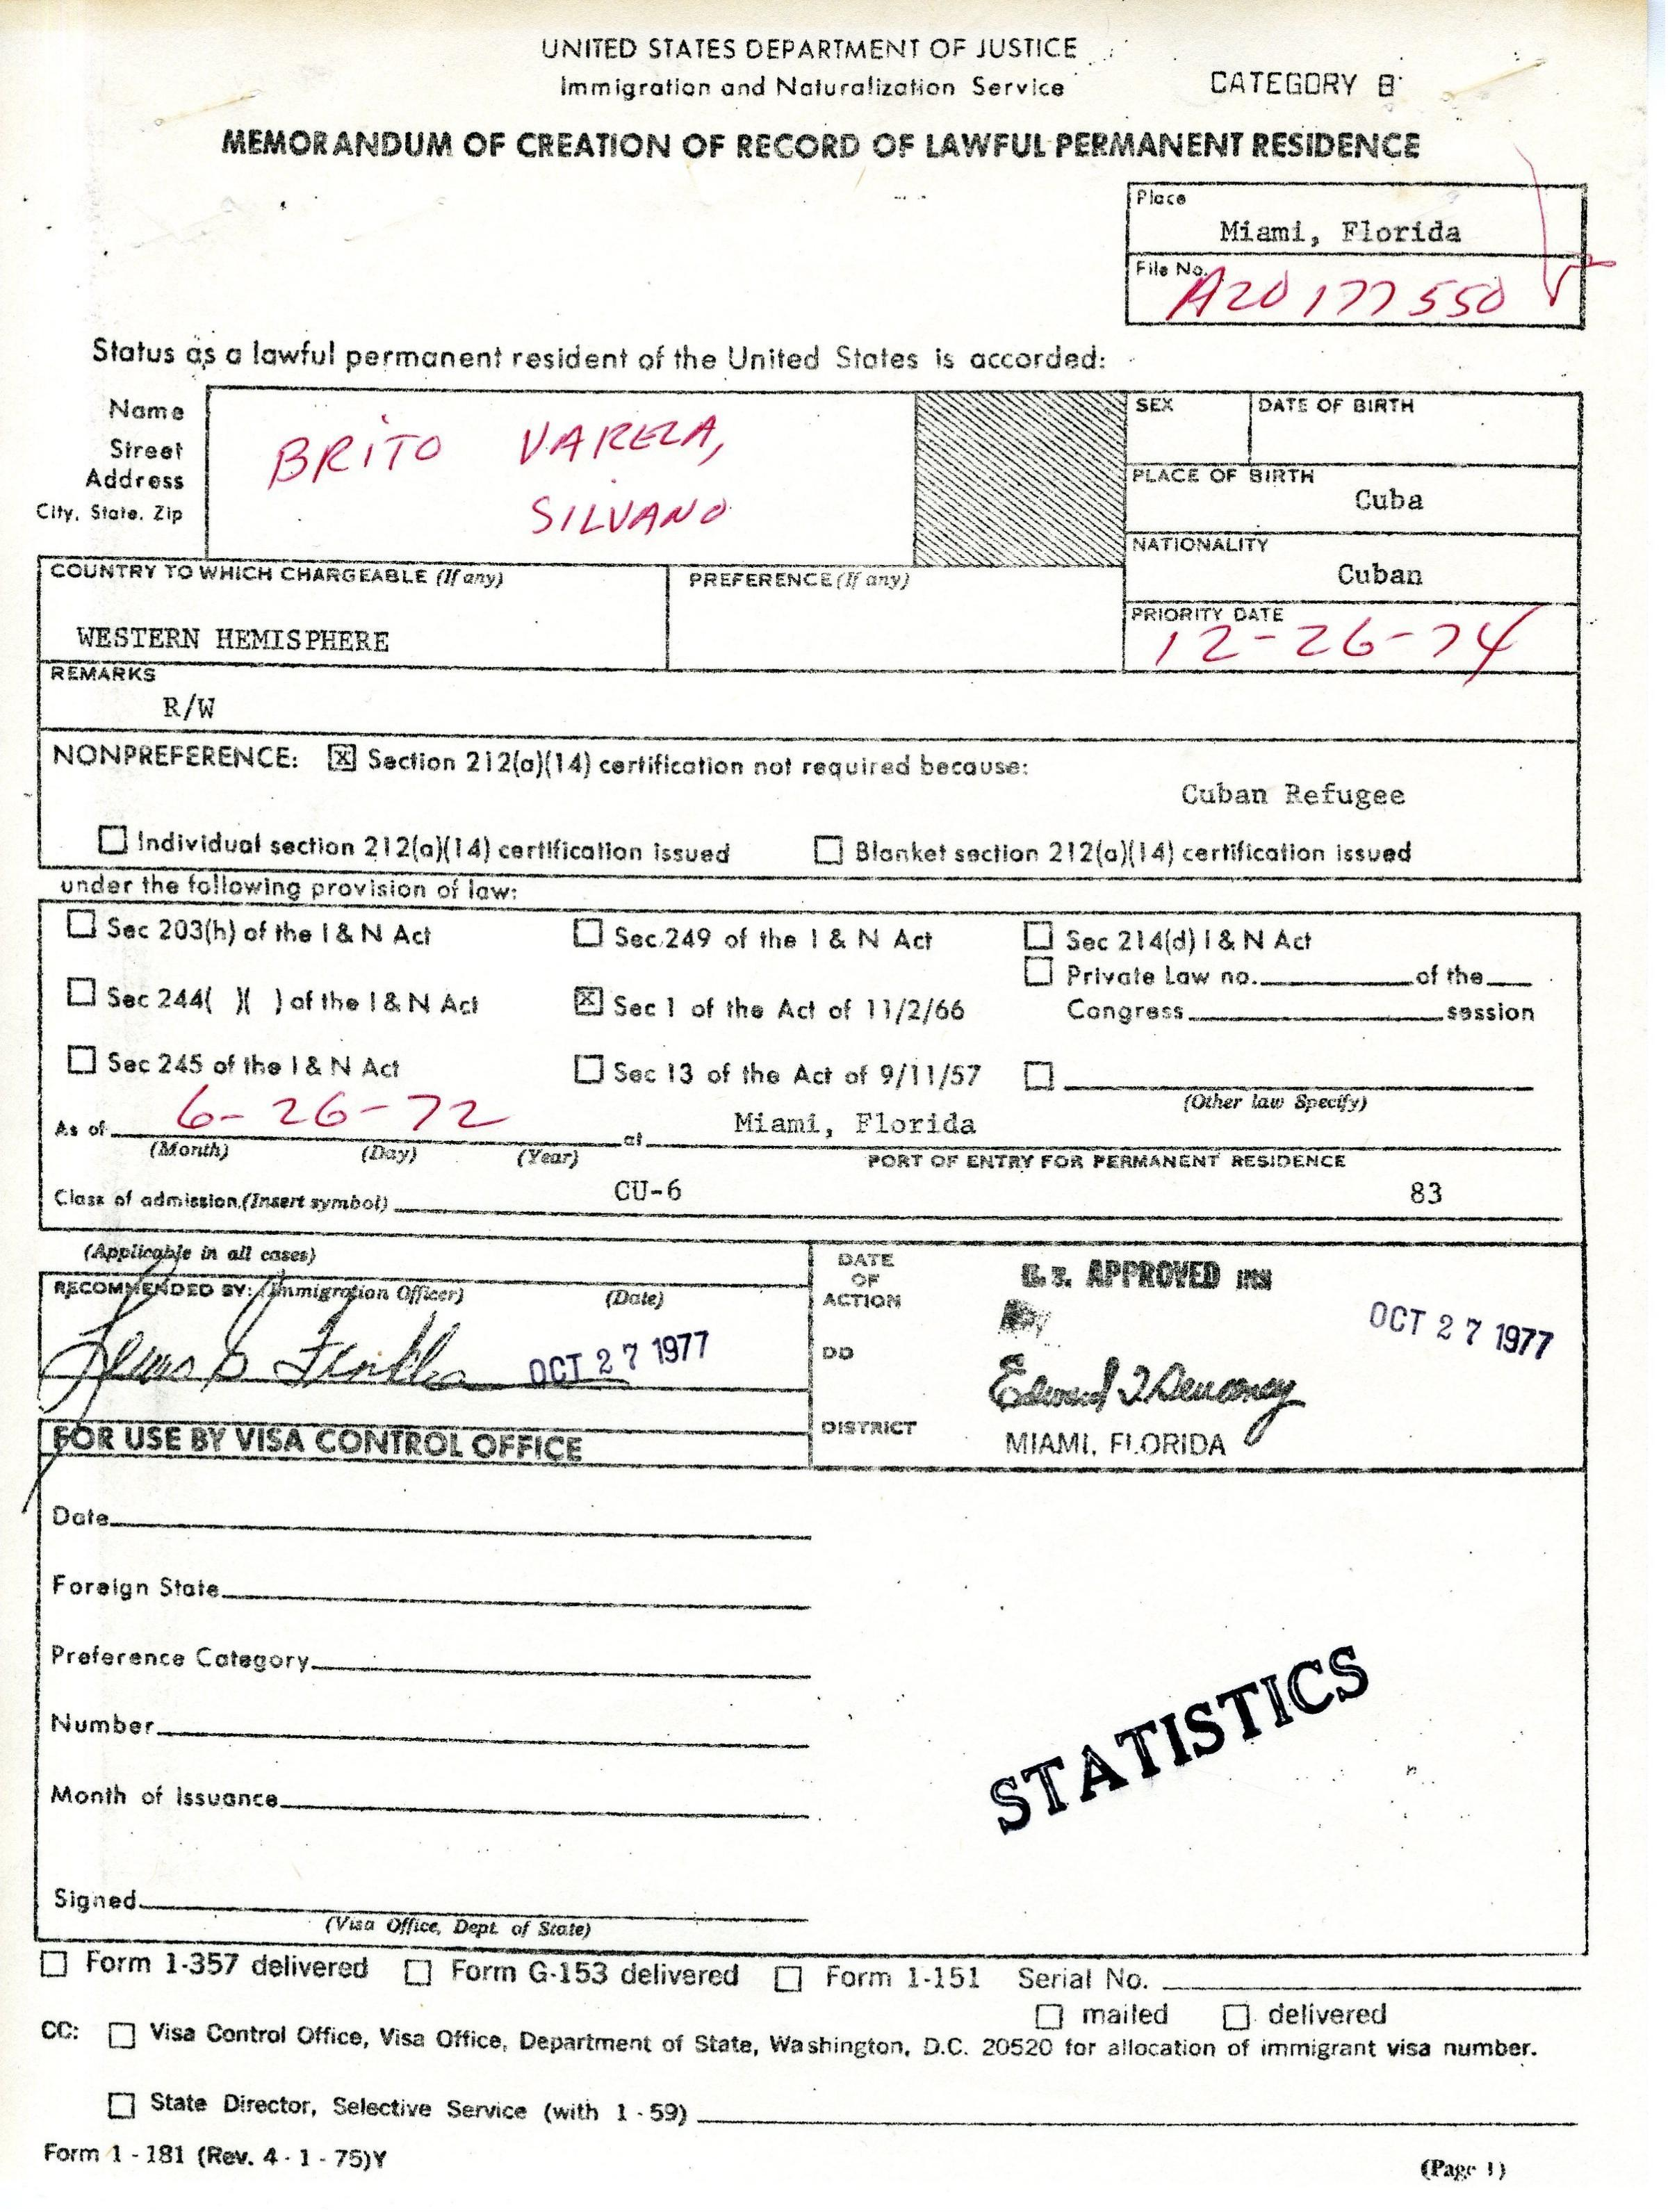 UNITED STATES DEPARTMENT OF JUSTICE
Immigration and Naturalization Service
CATEGORY B
MEMORANDUM OF CREATION OF RECORD OF LAWFUL PERMANENT RESIDENCE
Place
Miami, Florida
File No.
A20 177 550
Status as a lawful permanent resident of the United States is accorded:
Name
Street
Address
City, State, Zip
BRITO VARELA,
SILVANO
SEX
DATE OF BIRTH
PLACE OF BIRTH
Cuba
NATIONALITY
Cuban
COUNTRY TO WHICH CHARGEABLE (If any)
WESTERN HEMISPHERE
PREFERENCE (If any)
PRIORITY DATE
12-26-74
REMARKS
R/W
NONPREFERENCE: [X] Section 212(a)(14) certification not required because:
Cuban Refugee
☐ Individual section 212(a)(14) certification issued ☐ Blanket section 212(a)(14) certification issued
under the following provision of law:
☐ Sec 203(h) of the I & N Act ☐ Sec 249 of the I & N Act ☐ Sec 214(d) I & N Act
☐ Private Law no. of the
☐ Sec 244( )( ) of the I & N Act [X] Sec 1 of the Act of 11/2/66 Congress session
☐ Sec 245 of the I & N Act ☐ Sec 13 of the Act of 9/11/57 ☐
(Other law Specify)
As of 6-26-72 at Miami, Florida
(Month) (Day) (Year) PORT OF ENTRY FOR PERMANENT RESIDENCE
Class of admission (Insert symbol) CU-6 83
(Applicable in all cases)
RECOMMENDED BY: (Immigration Officer) (Date)
OCT 27 1977
DATE
OF
ACTION
DD
DISTRICT
U.S. APPROVED INS
OCT 27 1977
MIAMI, FLORIDA
FOR USE BY VISA CONTROL OFFICE
Date
Foreign State
Preference Category
Number
Month of Issuance
STATISTICS
Signed
(Visa Office, Dept. of State)
☐ Form 1-357 delivered ☐ Form G-153 delivered ☐ Form 1-151 Serial No.
☐ mailed ☐ delivered
CC: ☐ Visa Control Office, Visa Office, Department of State, Washington, D.C. 20520 for allocation of immigrant visa number.
☐ State Director, Selective Service (with 1-59)
Form 1-181 (Rev. 4-1-75)Y
(Page 1)